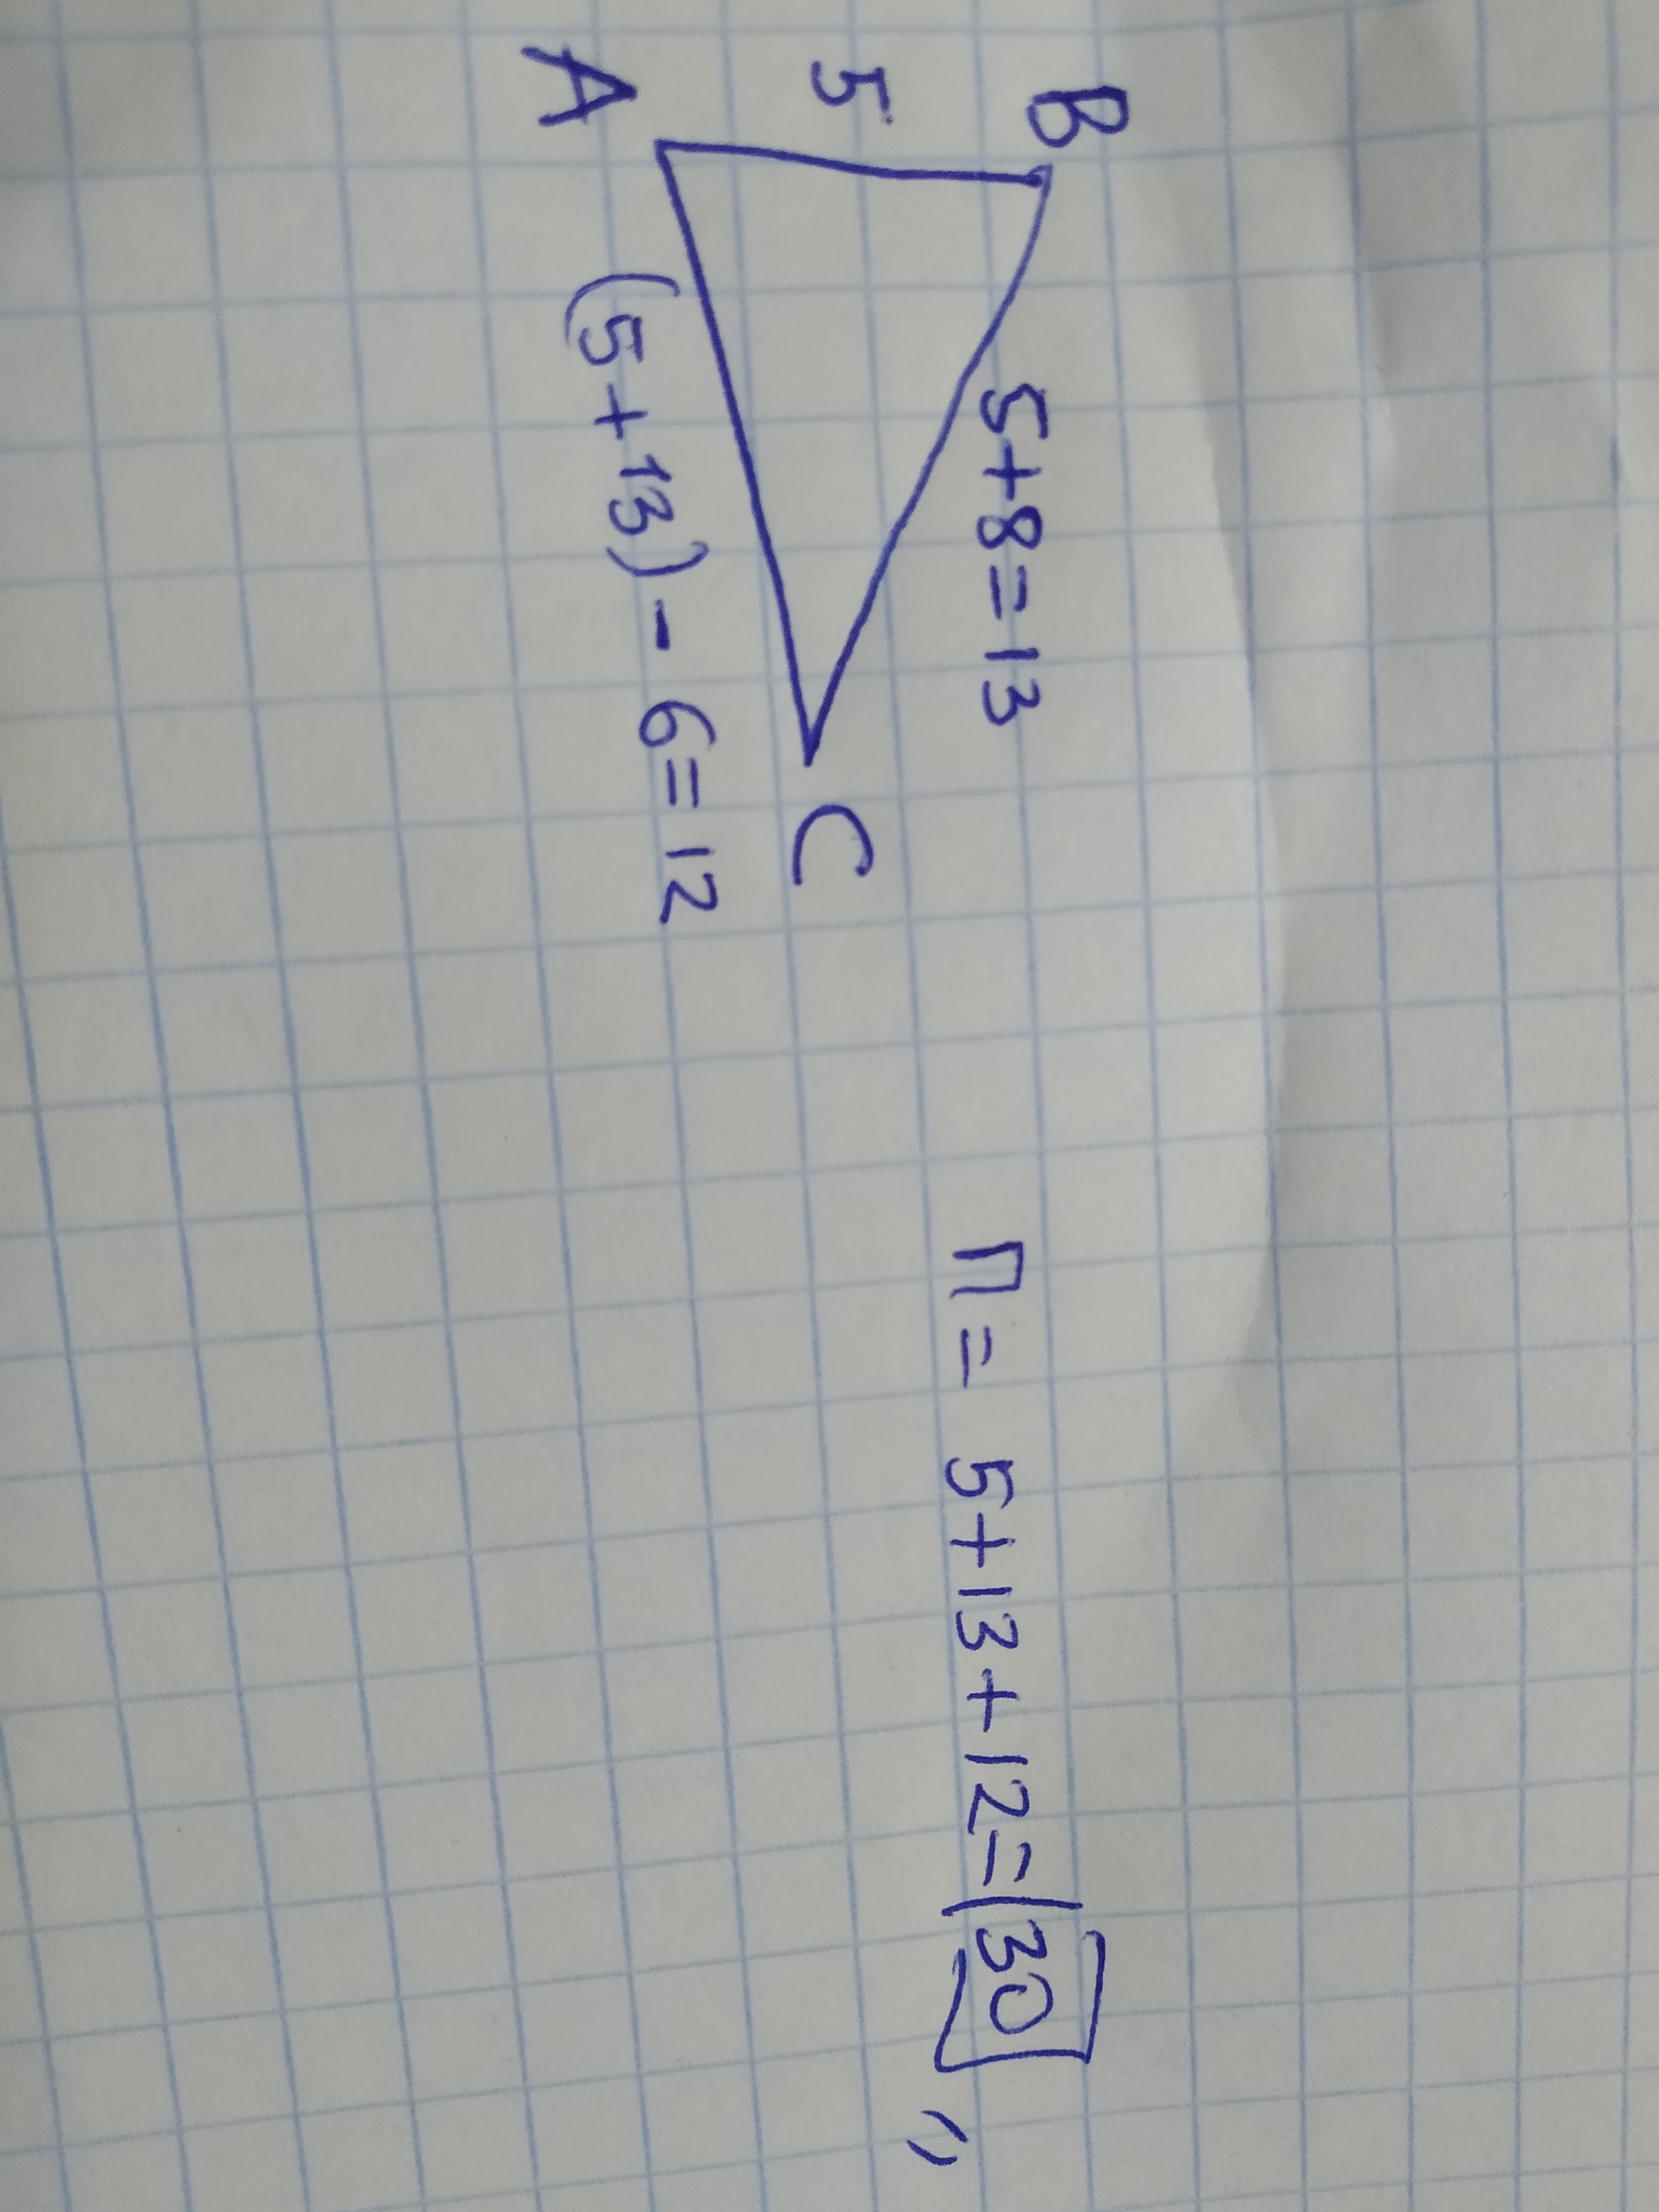 B
5
5+8=13
A
C
(5+13)-6=12
П= 5+13+12=30